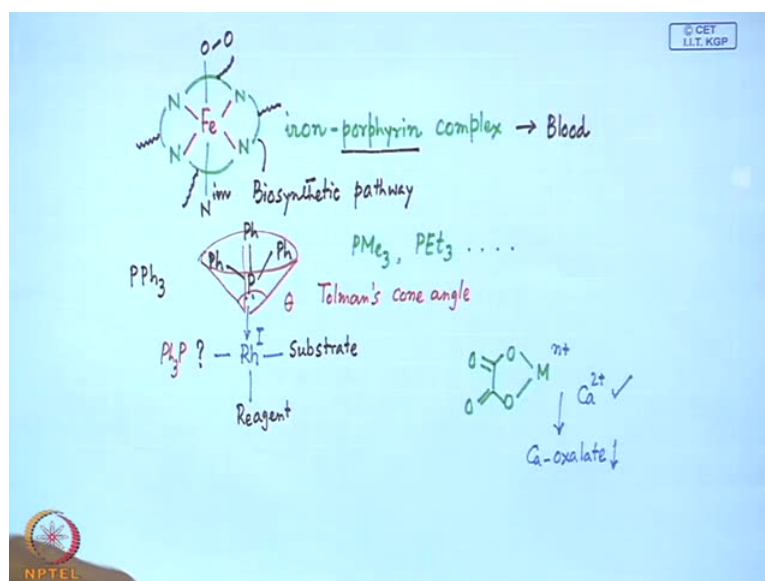 © CET
I.I.T. KGP
O-O
N N
Fe
N N
iron-porphyrin complex → Blood
N im
Biosynthetic pathway
Ph
Ph Ph
P
PPh3
PMe3, PEt3 ....
θ Tolman's cone angle
Ph3P ? — Rh I — Substrate
Reagent
O O M n+
O O
Ca2+ ✓
Ca-oxalate ↓
NPTEL